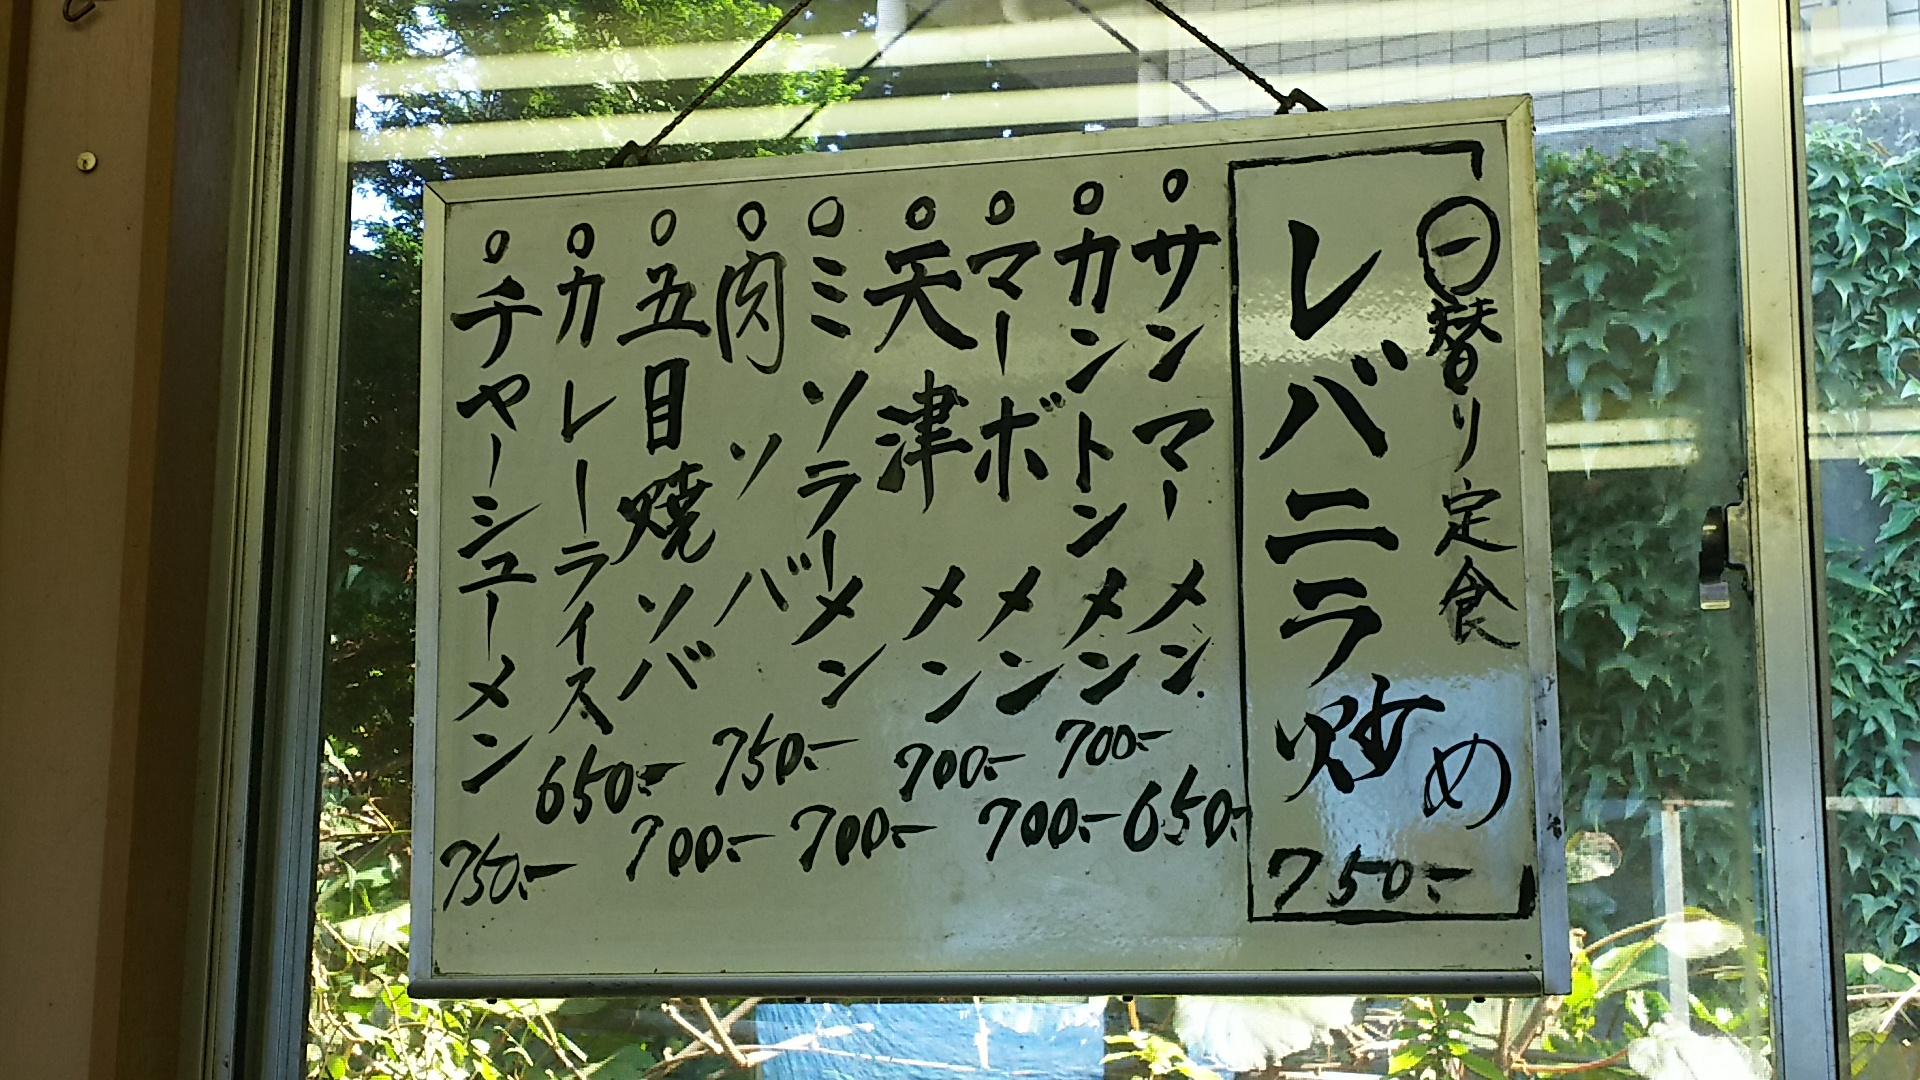 日替り定食
レバニラ炒め
750.-
○サンマーメン 650.-
○カントンメン 700.-
○マーボメン 700.-
○天津メン 700.-
○ミソラーメン 700.-
○肉ソバ 750.-
○五目焼ソバ 700.-
○カレーライス 650.-
○チャーシューメン 750.-